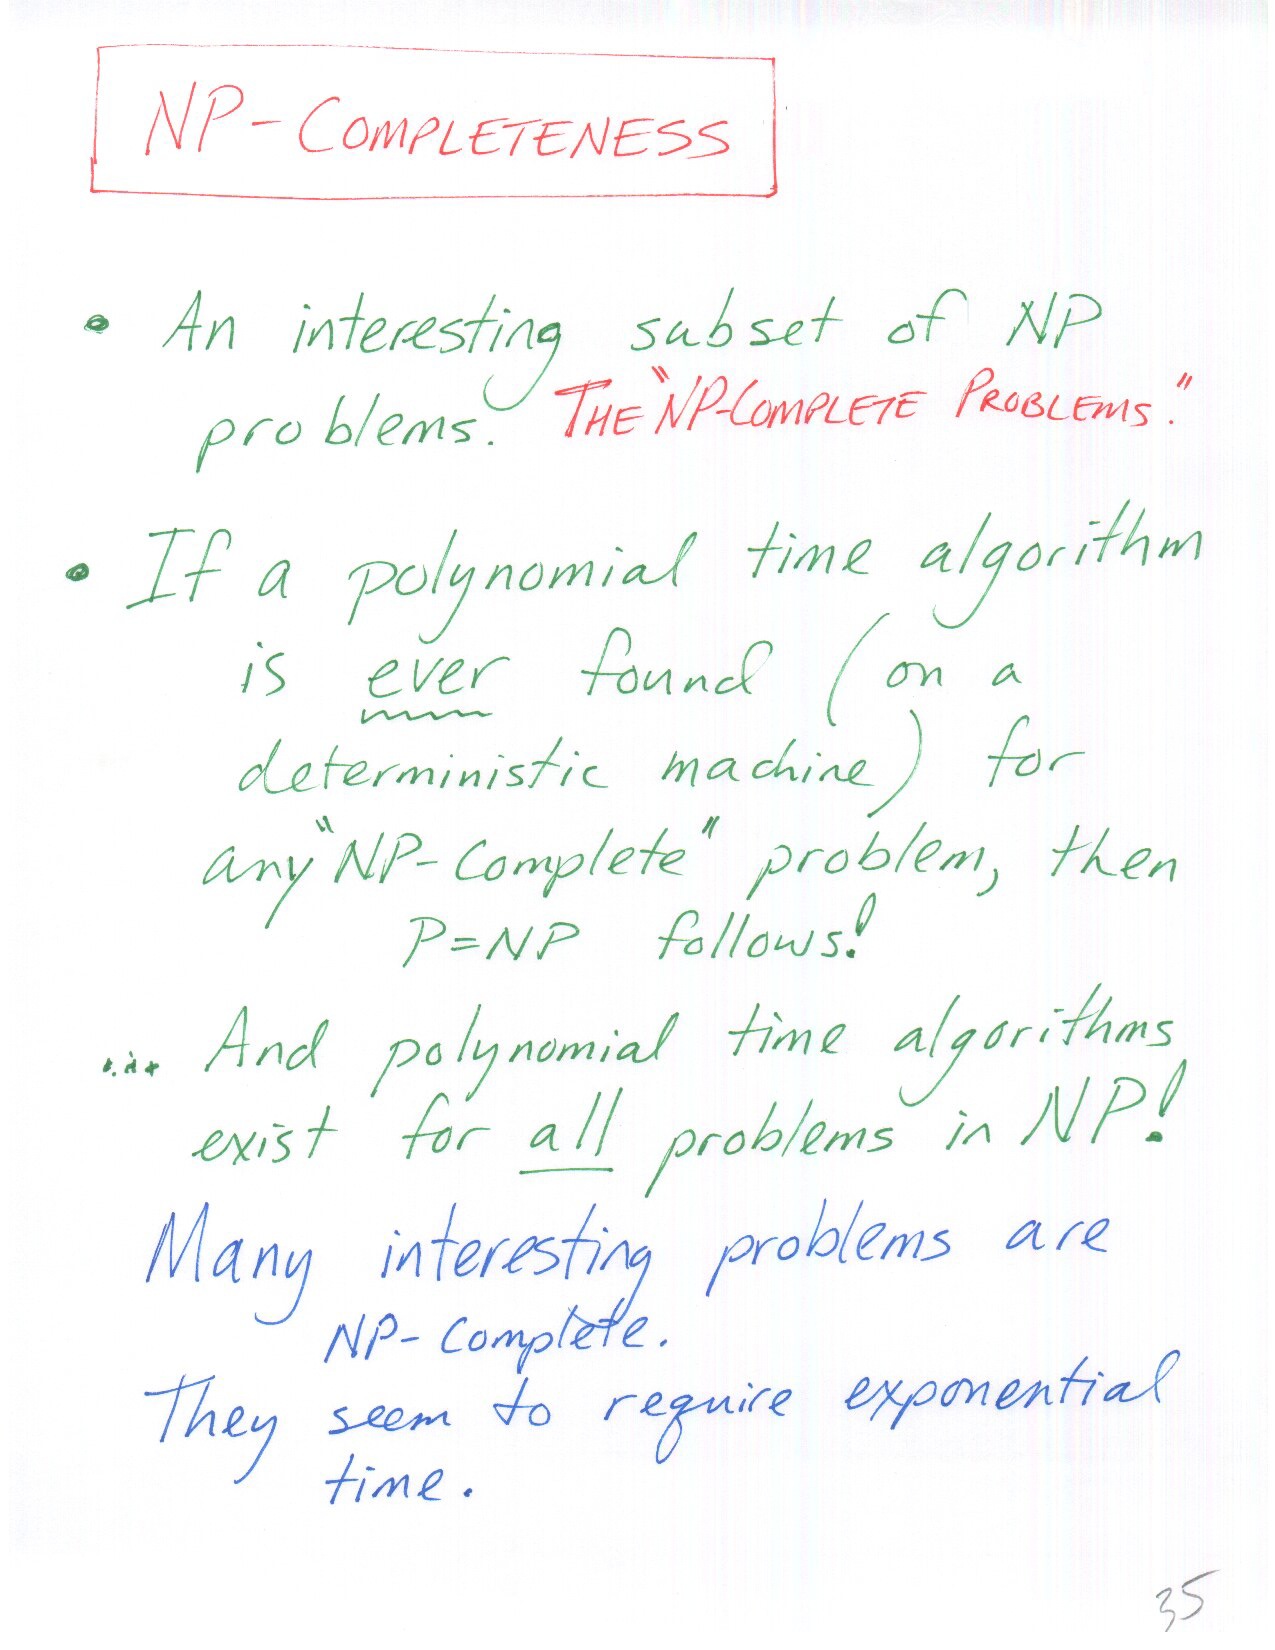 NP-COMPLETENESS
• An interesting subset of NP
problems. THE "NP-COMPLETE PROBLEMS."
• If a polynomial time algorithm
is ever found (on a
deterministic machine) for
any "NP-Complete" problem, then
P=NP follows!
... And polynomial time algorithms
exist for all problems in NP!
Many interesting problems are
NP-Complete.
They seem to require exponential
time.
35